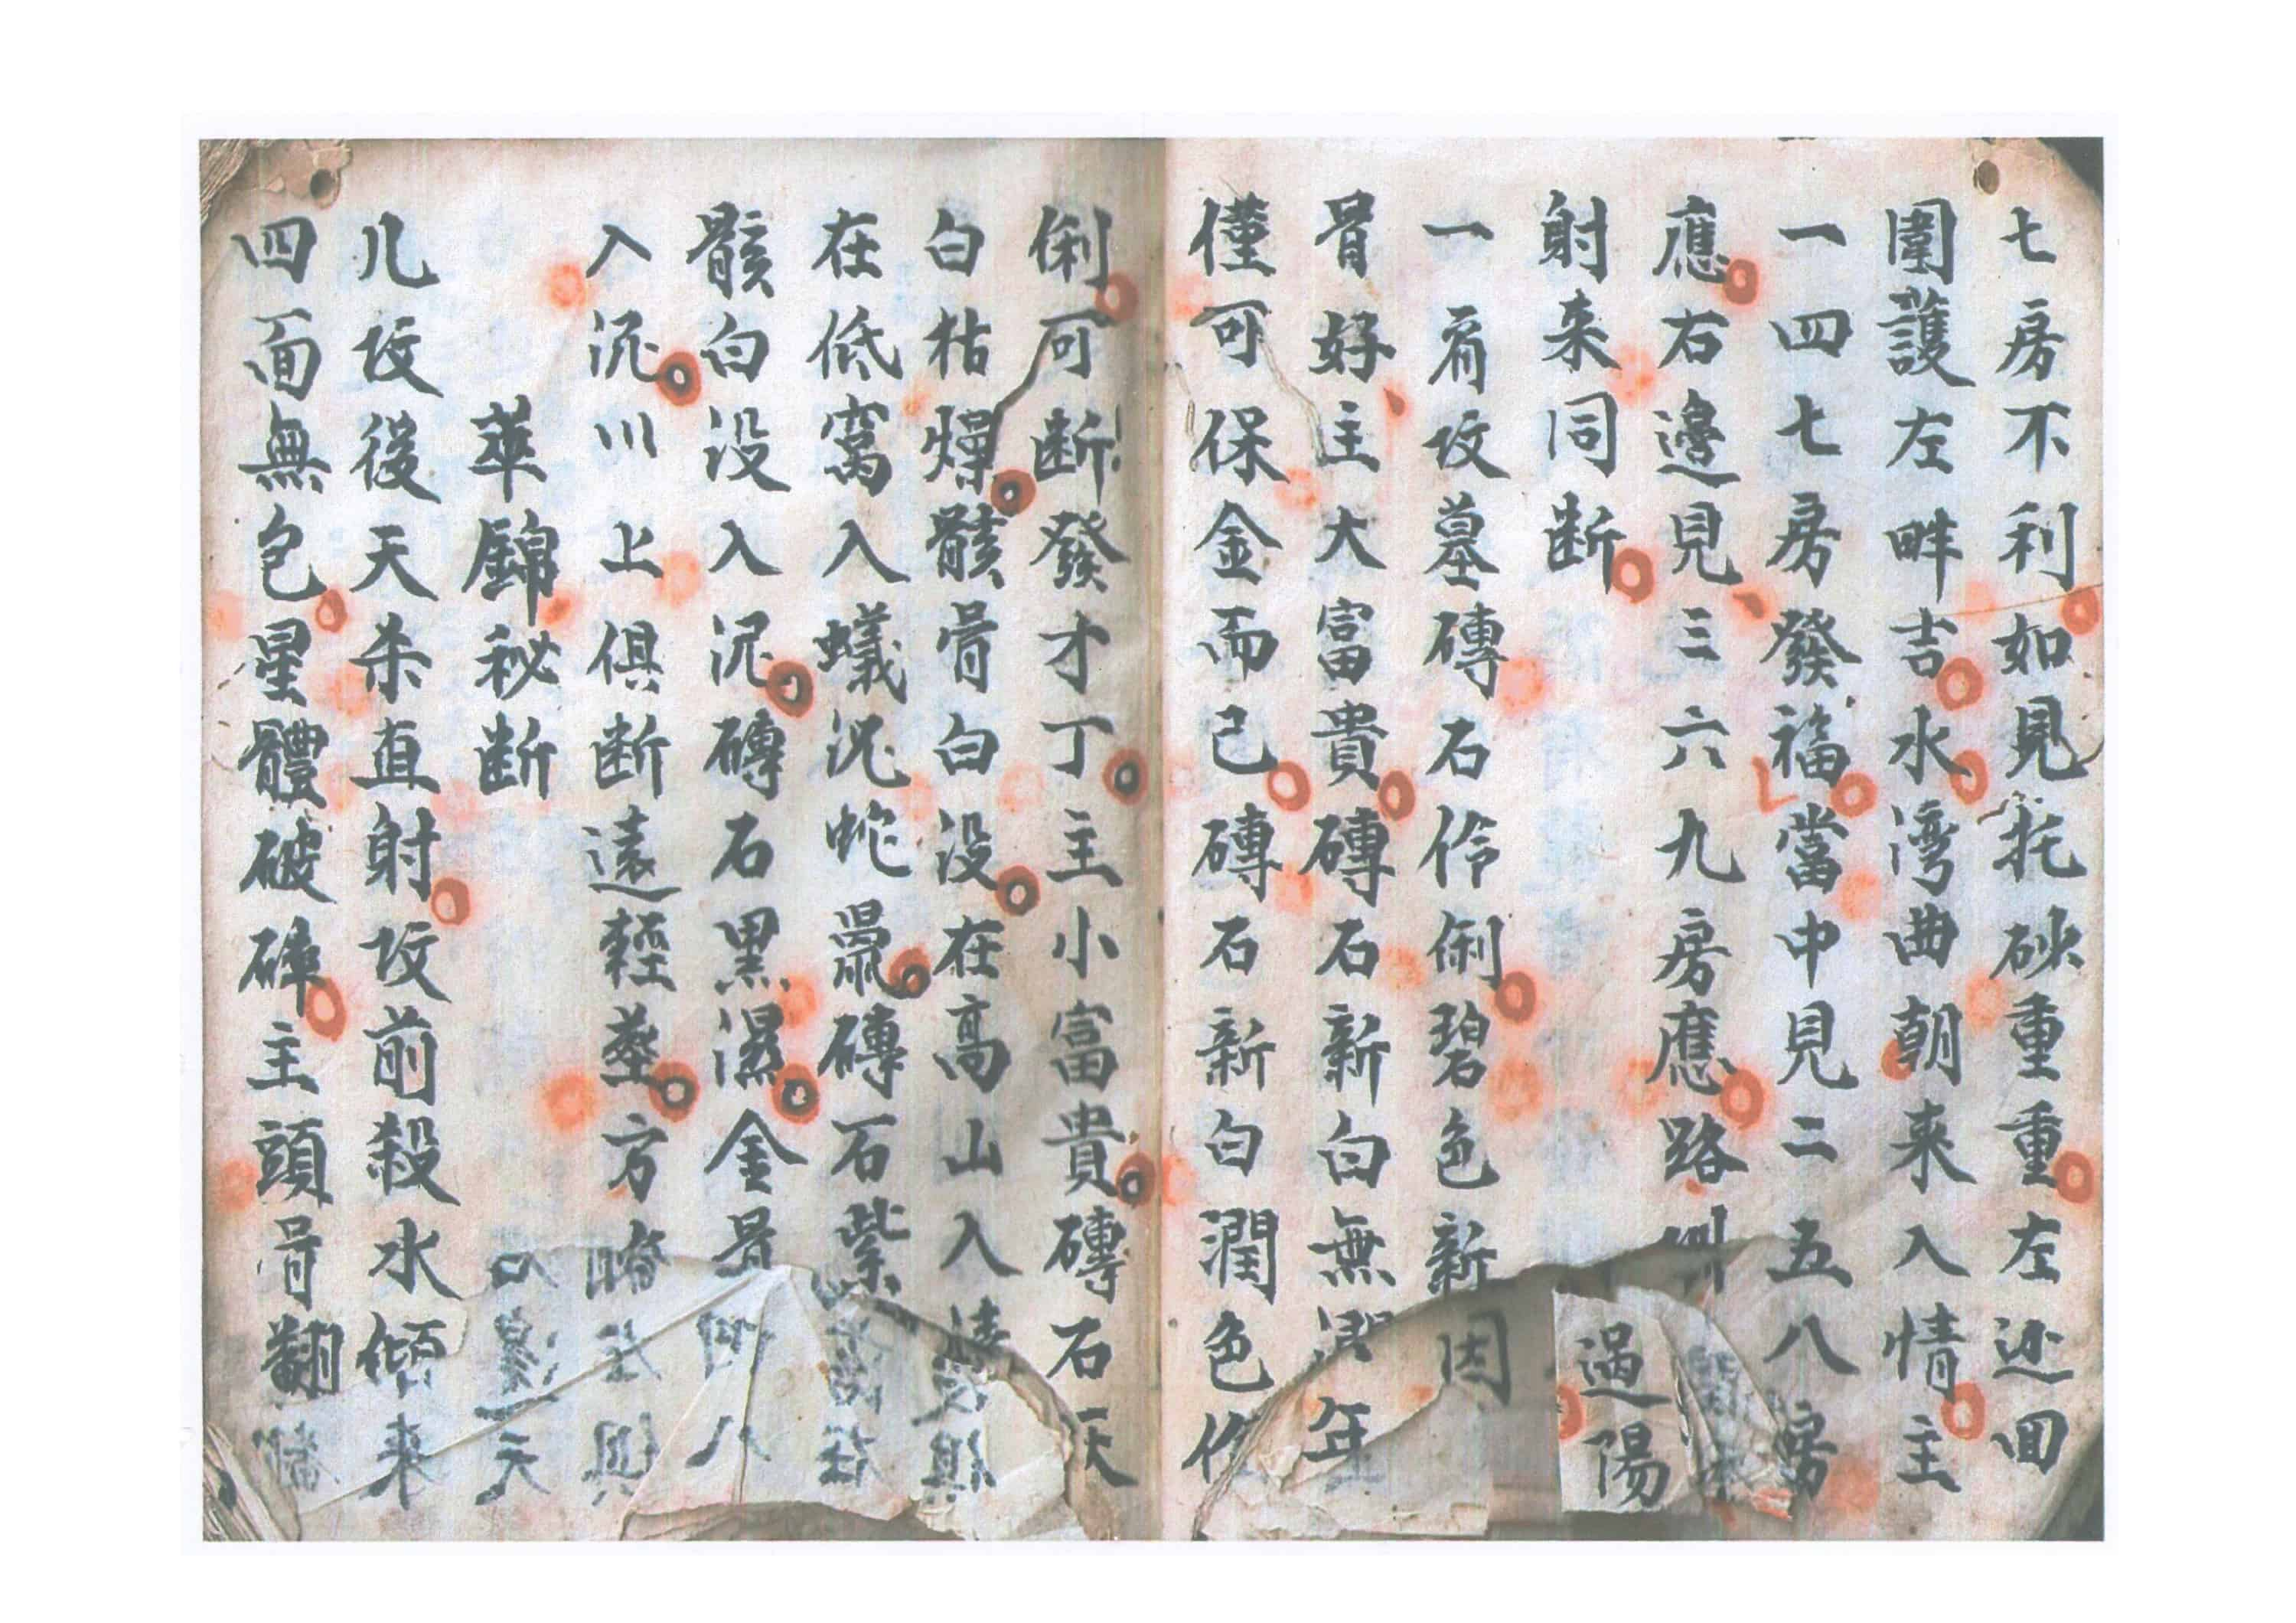 七房不利如見托砂重重左迯回
圍護左畔吉水湾曲朝来入情主
一四七房發福當中見二五八房
應右邊見三六九房應路
射来同断
過陽
一看坟墓磚石伶俐碧色新
骨好主大富貴磚石新白無潤
僅可保金而己磚石新白潤色
俐可断發才丁主小富貴磚石灰
白枯燥骸骨白没在高山入
在低窩入蟻沉蛇鼠磚石紫
骸白没入泥磚石黒濕金骨
入沉川上俱断遠輕塟方
華錦秘断
凡坟後天杀直射坟前殺水傾来
四面無包星體破碎主頭骨翻